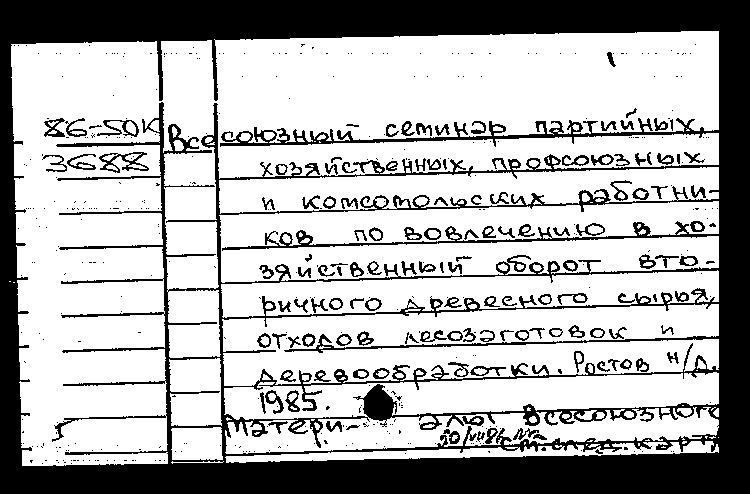 86-50К Всесоюзный семинар партийных,
3688 хозяйственных, профсоюзных
и комсомольских работни-
ков по вовлечению в хо-
зяйственный оборот вто-
ричного древесного сырья,
отходов лесозаготовок и
деревообработки. Ростов н/Д.
1985.
Матери- алы Всесоюзного
См. след. карт